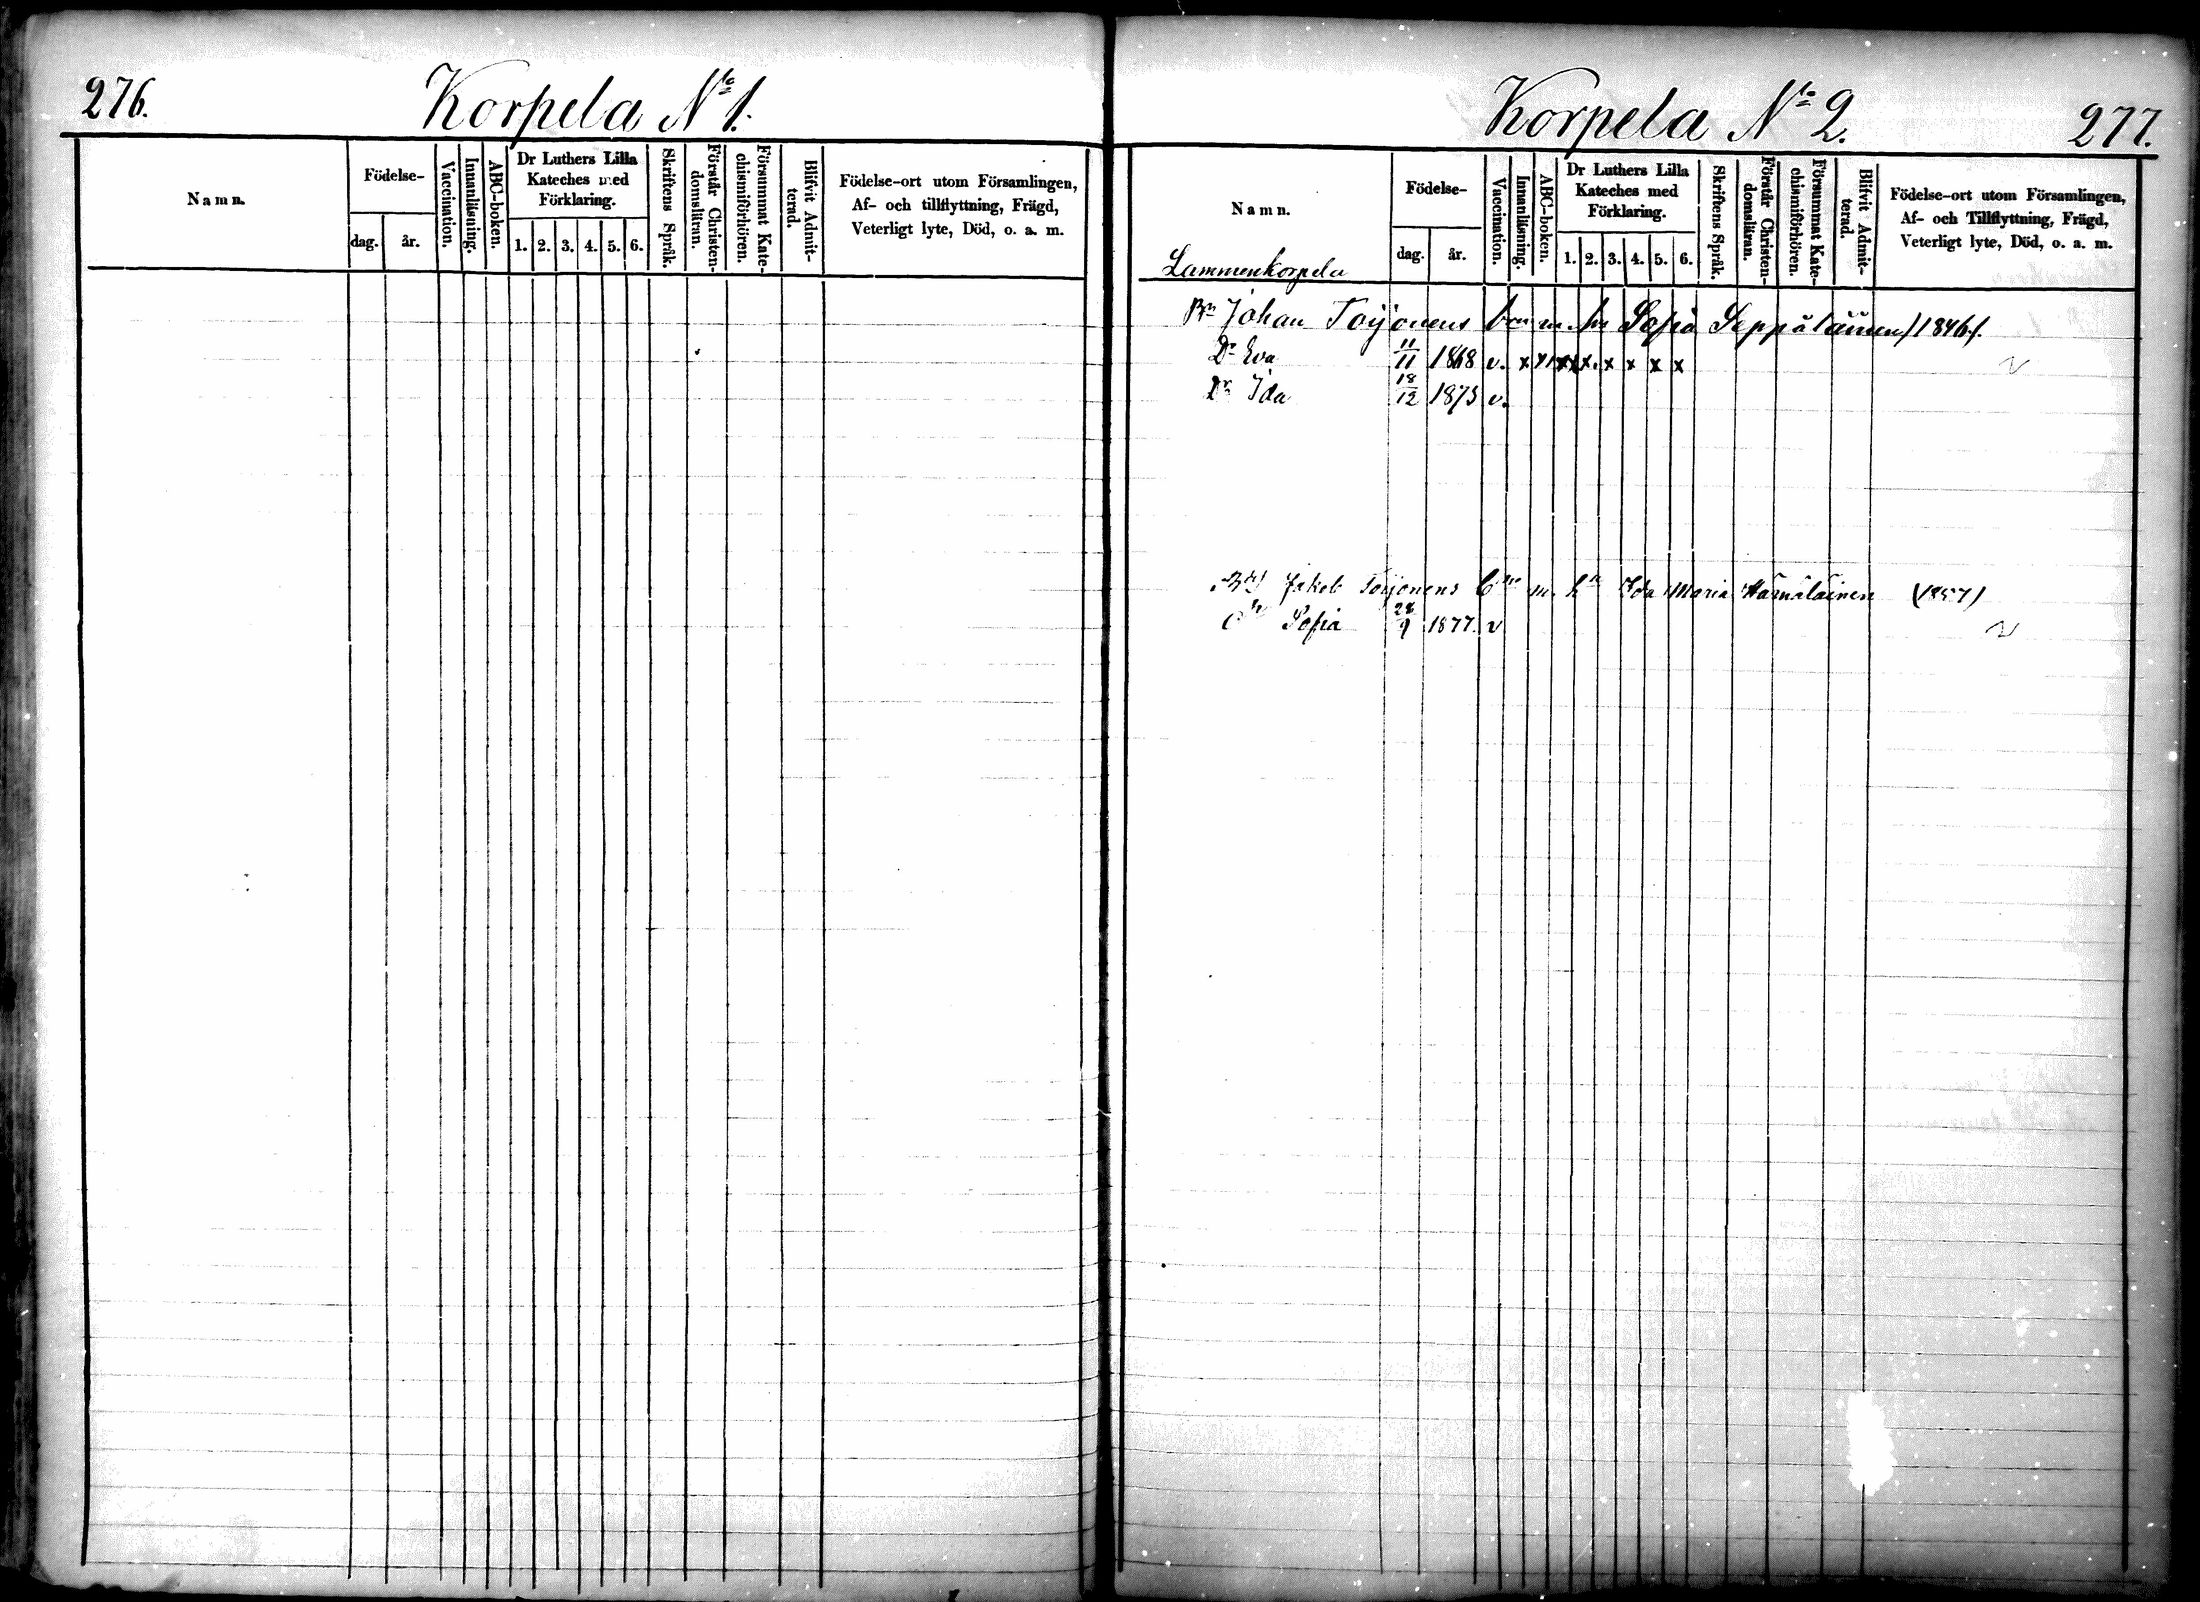 276. Korpela No 1.
Namn.
Födelse-
dag. år.
Vaccination.
Innanläsning.
ABC-boken.
Dr Luthers Lilla
Kateches med
Förklaring.
1. 2. 3. 4. 5. 6.
Skriftens Språk.
Förstår Christen-
domsläran.
Försummat Kate-
chismiförhören.
Blifvit Admit-
terad.
Födelse-ort utom Församlingen,
Af- och tillflyttning, Frägd,
Veterligt lyte, Död, o. a. m.
Korpela No 2. 277.
Namn.
Födelse-
dag. år.
Vaccination.
Innanläsning.
ABC-boken.
Dr Luthers Lilla
Kateches med
Förklaring.
1. 2. 3. 4. 5. 6.
Skriftens Språk.
Förstår Christen-
domsläran.
Försummat Kate-
chismiförhören.
Blifvit Admit-
terad.
Födelse-ort utom Församlingen,
Af- och Tillflyttning, Frägd,
Veterligt lyte, Död, o. a. m.
Lammenkorpela
Bn Johan Toijonens barn m. hu Sofia Seppäläinen /1846/.
Dr Eva 11/11 1868 v. x x x x x x x x
Dr Ida 18/12 1873 v.
Jakob Toijonens bn m. h Ida Maria Hämäläinen (1857)
Sofia 28/9 1877. v